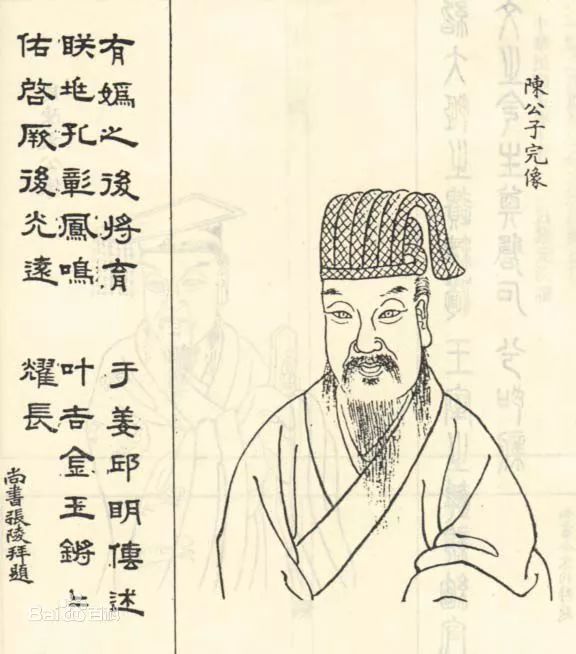 陳公子完像
有媯之後將育 于姜邱明傳述
眹兆孔彰鳳鳴 叶吉金玉鏘々
佑啓厥後光遠 耀長
尚書張陵拜題
Baidu百科